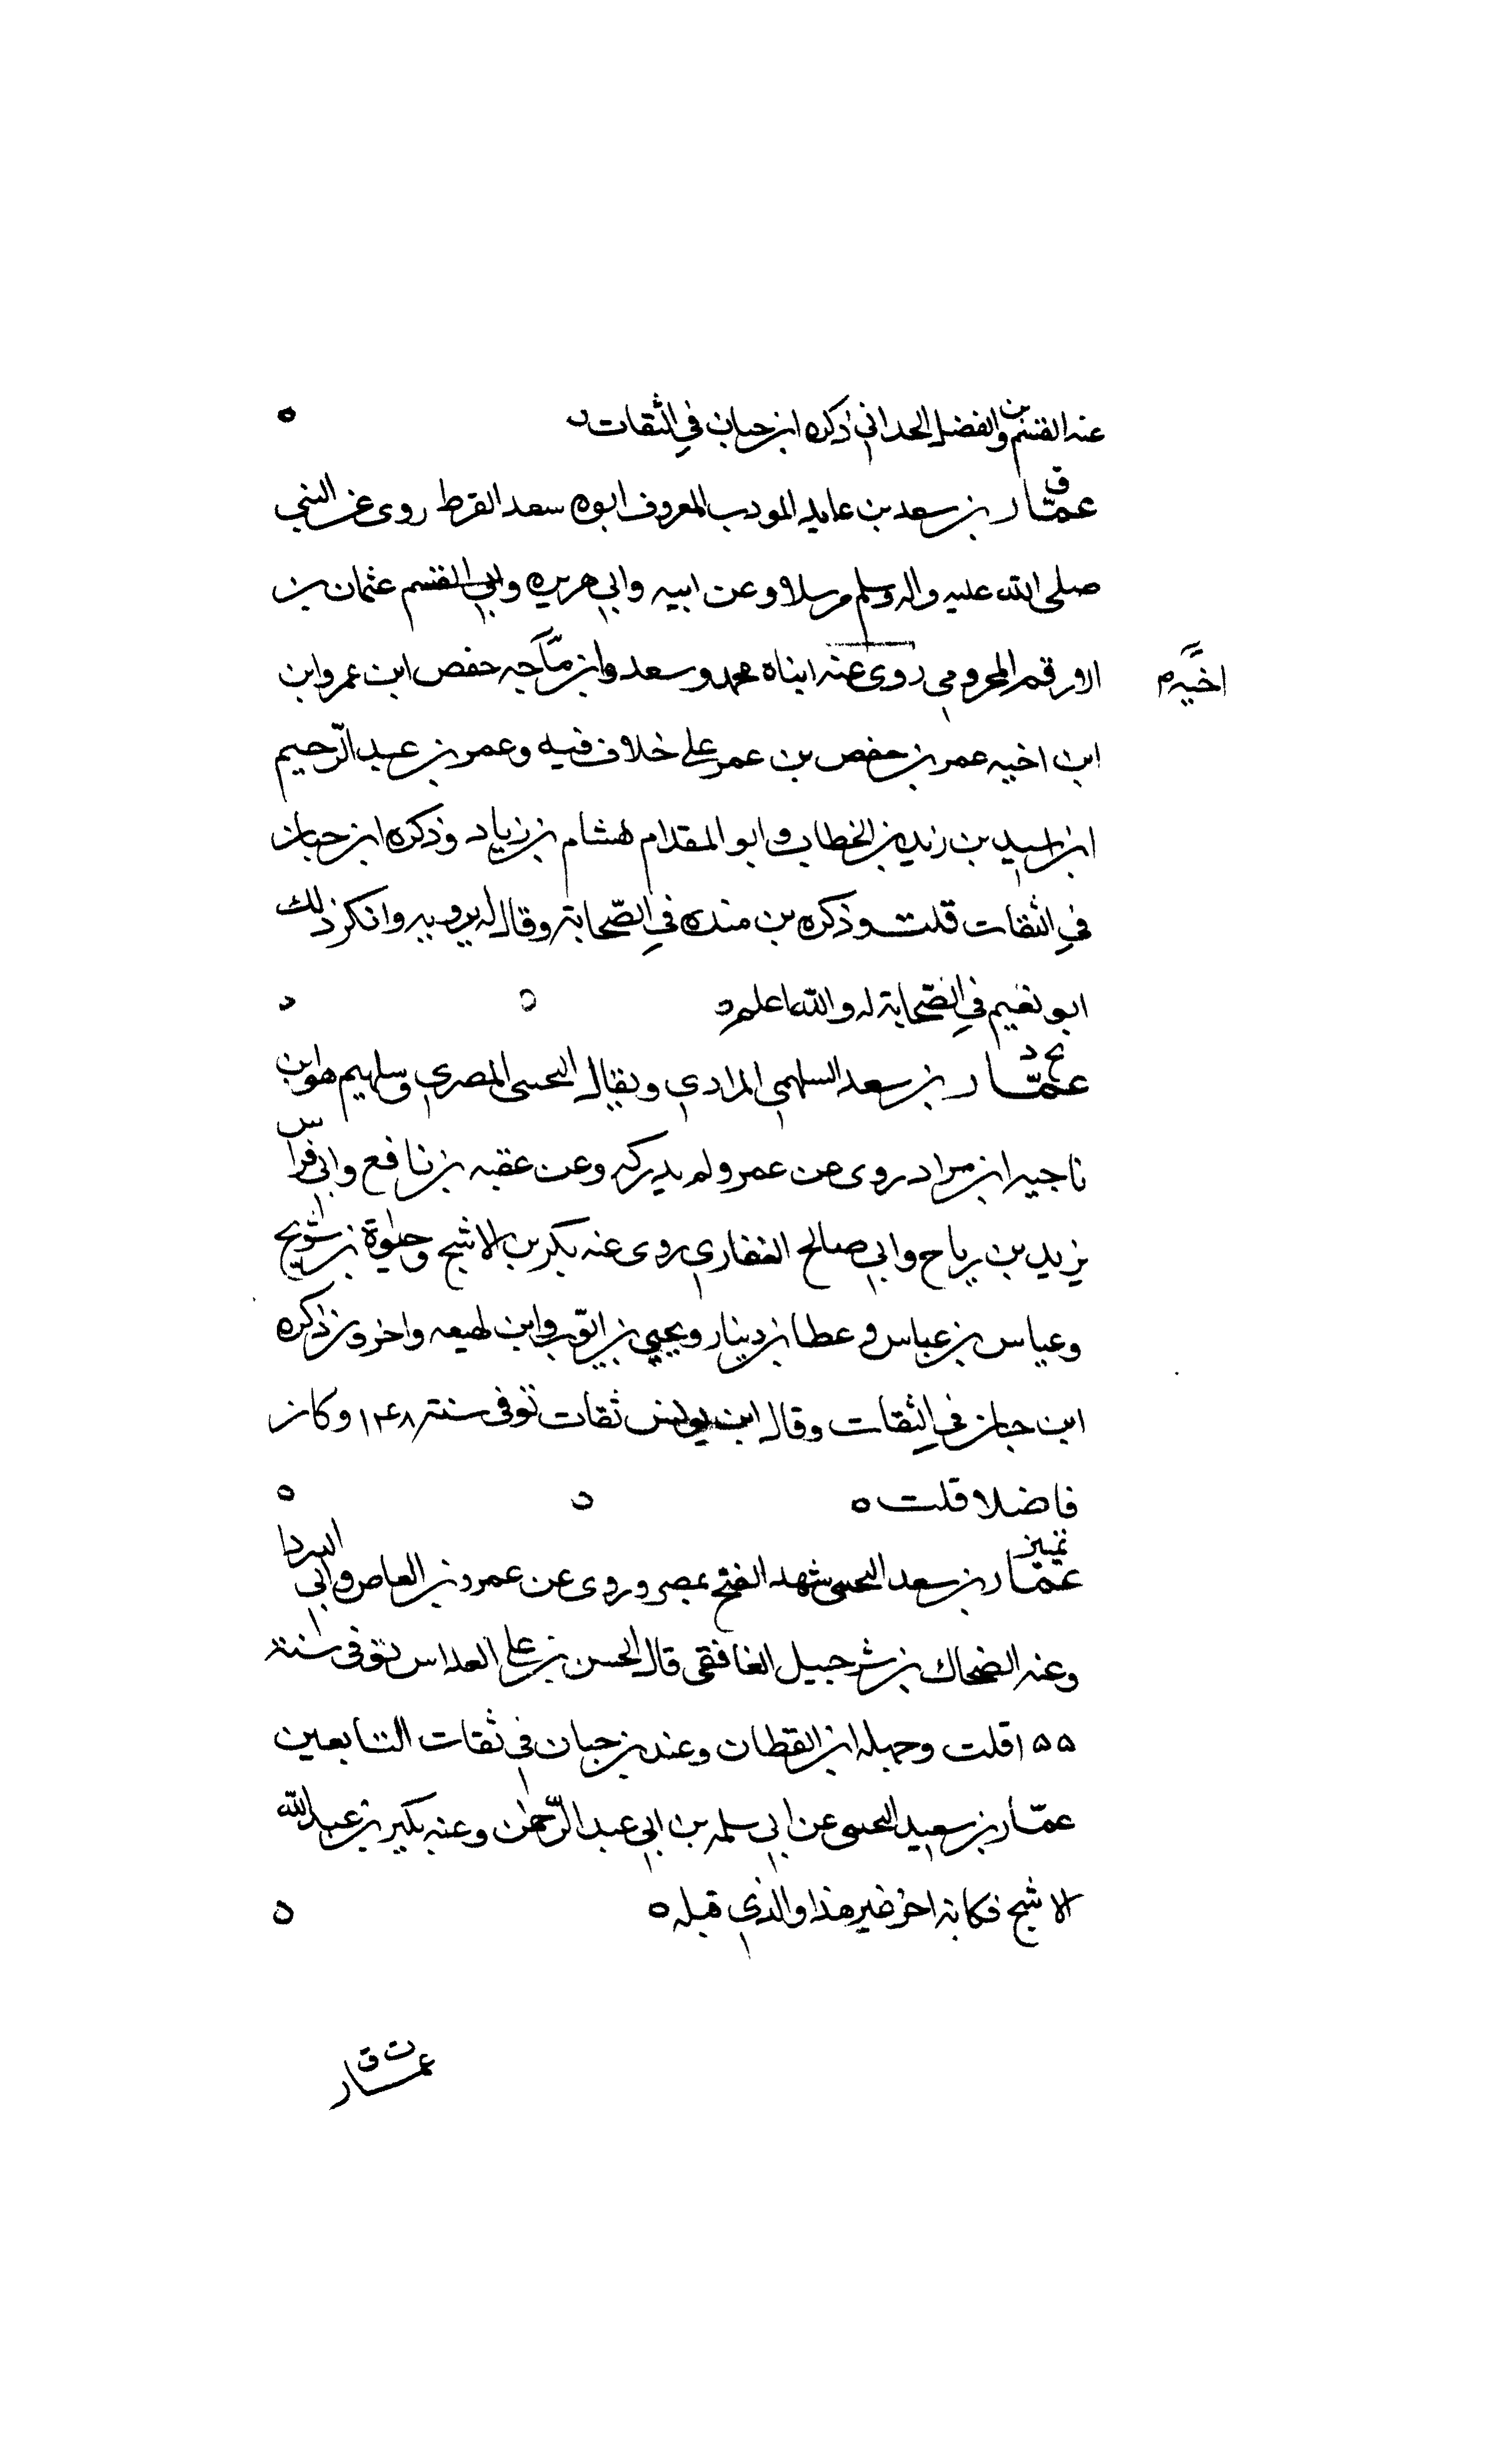 عنه القسم بن والفضل الحداني ذكره ابن حبان في الثقات
ق
عمّار بن سعد بن عايد المودب المعروف ابوه سعد القرظ روى عن النبي
صلى الله عليه واله وسلم مرسلا وعن ابيه وابي هريره وابي القسم عثمان بن
الارقم المخرومي روى عنه ابناه محمد وسعد وابن ماجه حفص ابن عمر وابن
اخيه م
ابن اخيه عمر بن حفص بن عمر على خلاف فيه وعمر بن عبد الرّحيم
ابن اسيد بن زيد بن الخطاب وابو المقدام هشام بن زياد وذكره ابن حبان
في الثقات قلت وذكره بن منده في الصّحابة وقال له روية وانكر ذلك
ابو نعيم في الصّحابة له والله اعلم
بخ د
عمّار بن سعد السلهمي المرادي ويقال التجيبى المصري وسلهم هو ابن
ناجية ابن مراد روى عن عمر ولم يدركه وعن عقبه بن نافع وابي فراس
يزيد بن رباح وابي صالح الغفاري روى عنه بكر بن الاشج وحيوة بن شريح
وعياس بن عباس و عطا بن دينار ويحيي بن ايّوب وابن لهيعه واخرون ذكره
ابن حبان في الثقات وقال ابن يونس ثقات توفى سنة ١٤٨ وكان
فاضلا قلت
تمييز
عمّار بن سعد التجيبى شهد الفتح بمصر وروى عن عمرو بن العاص وابي الدردا
وعنه الضحاك بن شرحبيل الغافقى قال الحسن بن على العداس توفى سنة
١٥٥ قلت وجهله ابن القطان وعند بن حبان في ثقات التابعين
عمّار بن سعيد التجيبى عن ابي سلمه بن ابي عبد الرّحمن وعنه بكير بن عبد الله
الاشج فكانه اخر غير هذا والذي قبله
ت ق
عمار